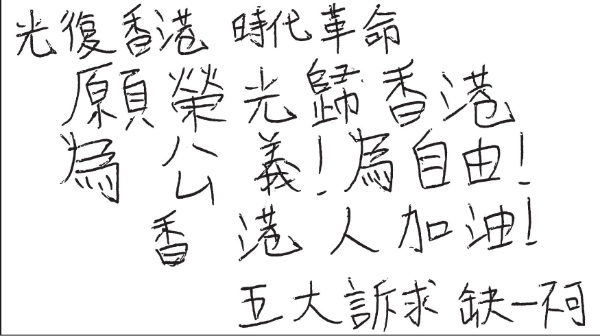 光復香港 時代革命
願榮光歸香港
為公義!為自由!
香港人加油!
五大訴求 缺一不可